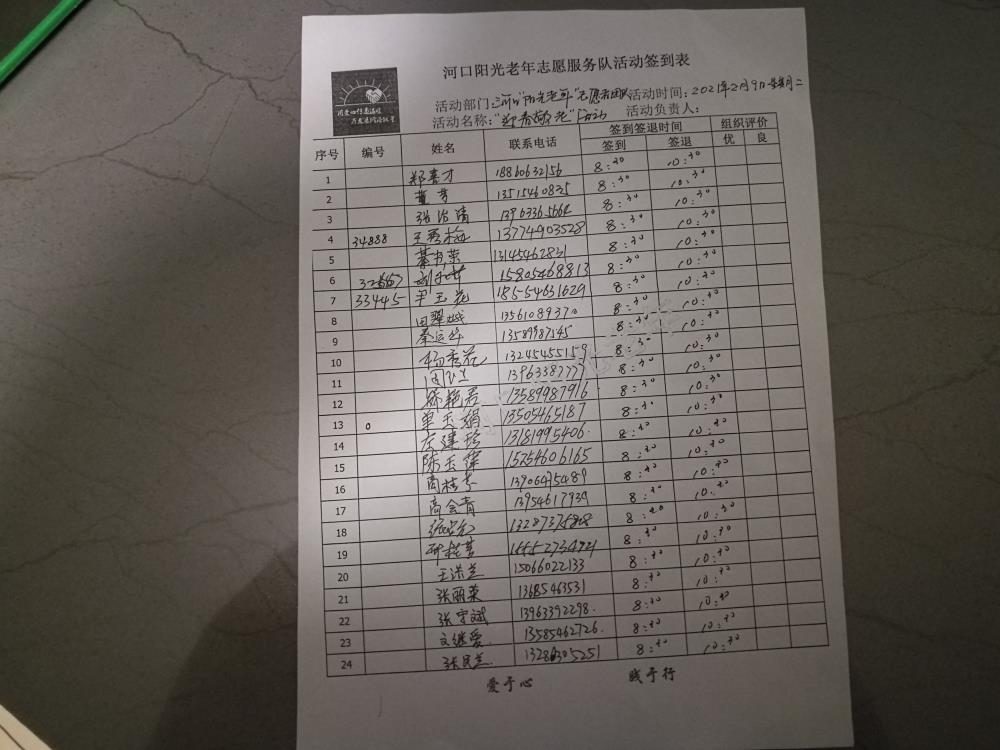 河口阳光老年志愿服务队活动签到表
活动部门: 活动时间:2021年2月9日星期二
活动名称: 活动负责人:
序号 编号 姓名 联系电话 签到签退时间 组织评价
签到 签退 优 良
1 18860632156 8:30 10:30
2 董芳 13515460825 8:30 10:30
3 张治清 8:30 10:30
4 34888 13774903528 8:30 10:30
5 綦书荣 13145462831 8:30 10:30
6 15805468813 8:30 10:30
7 33445 单玉花 18554631629 8:30 10:30
8 13561089370 8:30 10:30
9 秦运华 13589987545 8:30 10:30
10 杨秀花 13245455159 8:30 10:30
11 13963387777 8:30 10:30
12 13589987916 8:30 10:30
13 单玉娟 13505465187 8:30 10:30
14 左建珍 13181995406 8:30 10:30
15 陈玉莲 15254606165 8:30 10:30
16 周桂芬 13906475489 8:30 10:30
17 高会青 13954617939 8:30 10:30
18 8:30 10:30
19 8:30 10:30
20 王洪兰 15066022133 8:30 10:30
21 张丽荣 13685463531 8:30 10:30
22 张守斌 13963392298 8:30 10:30
23 文继爱 13585462726 8:30 10:30
24 张民兰 8:30 10:30
爱于心 践于行